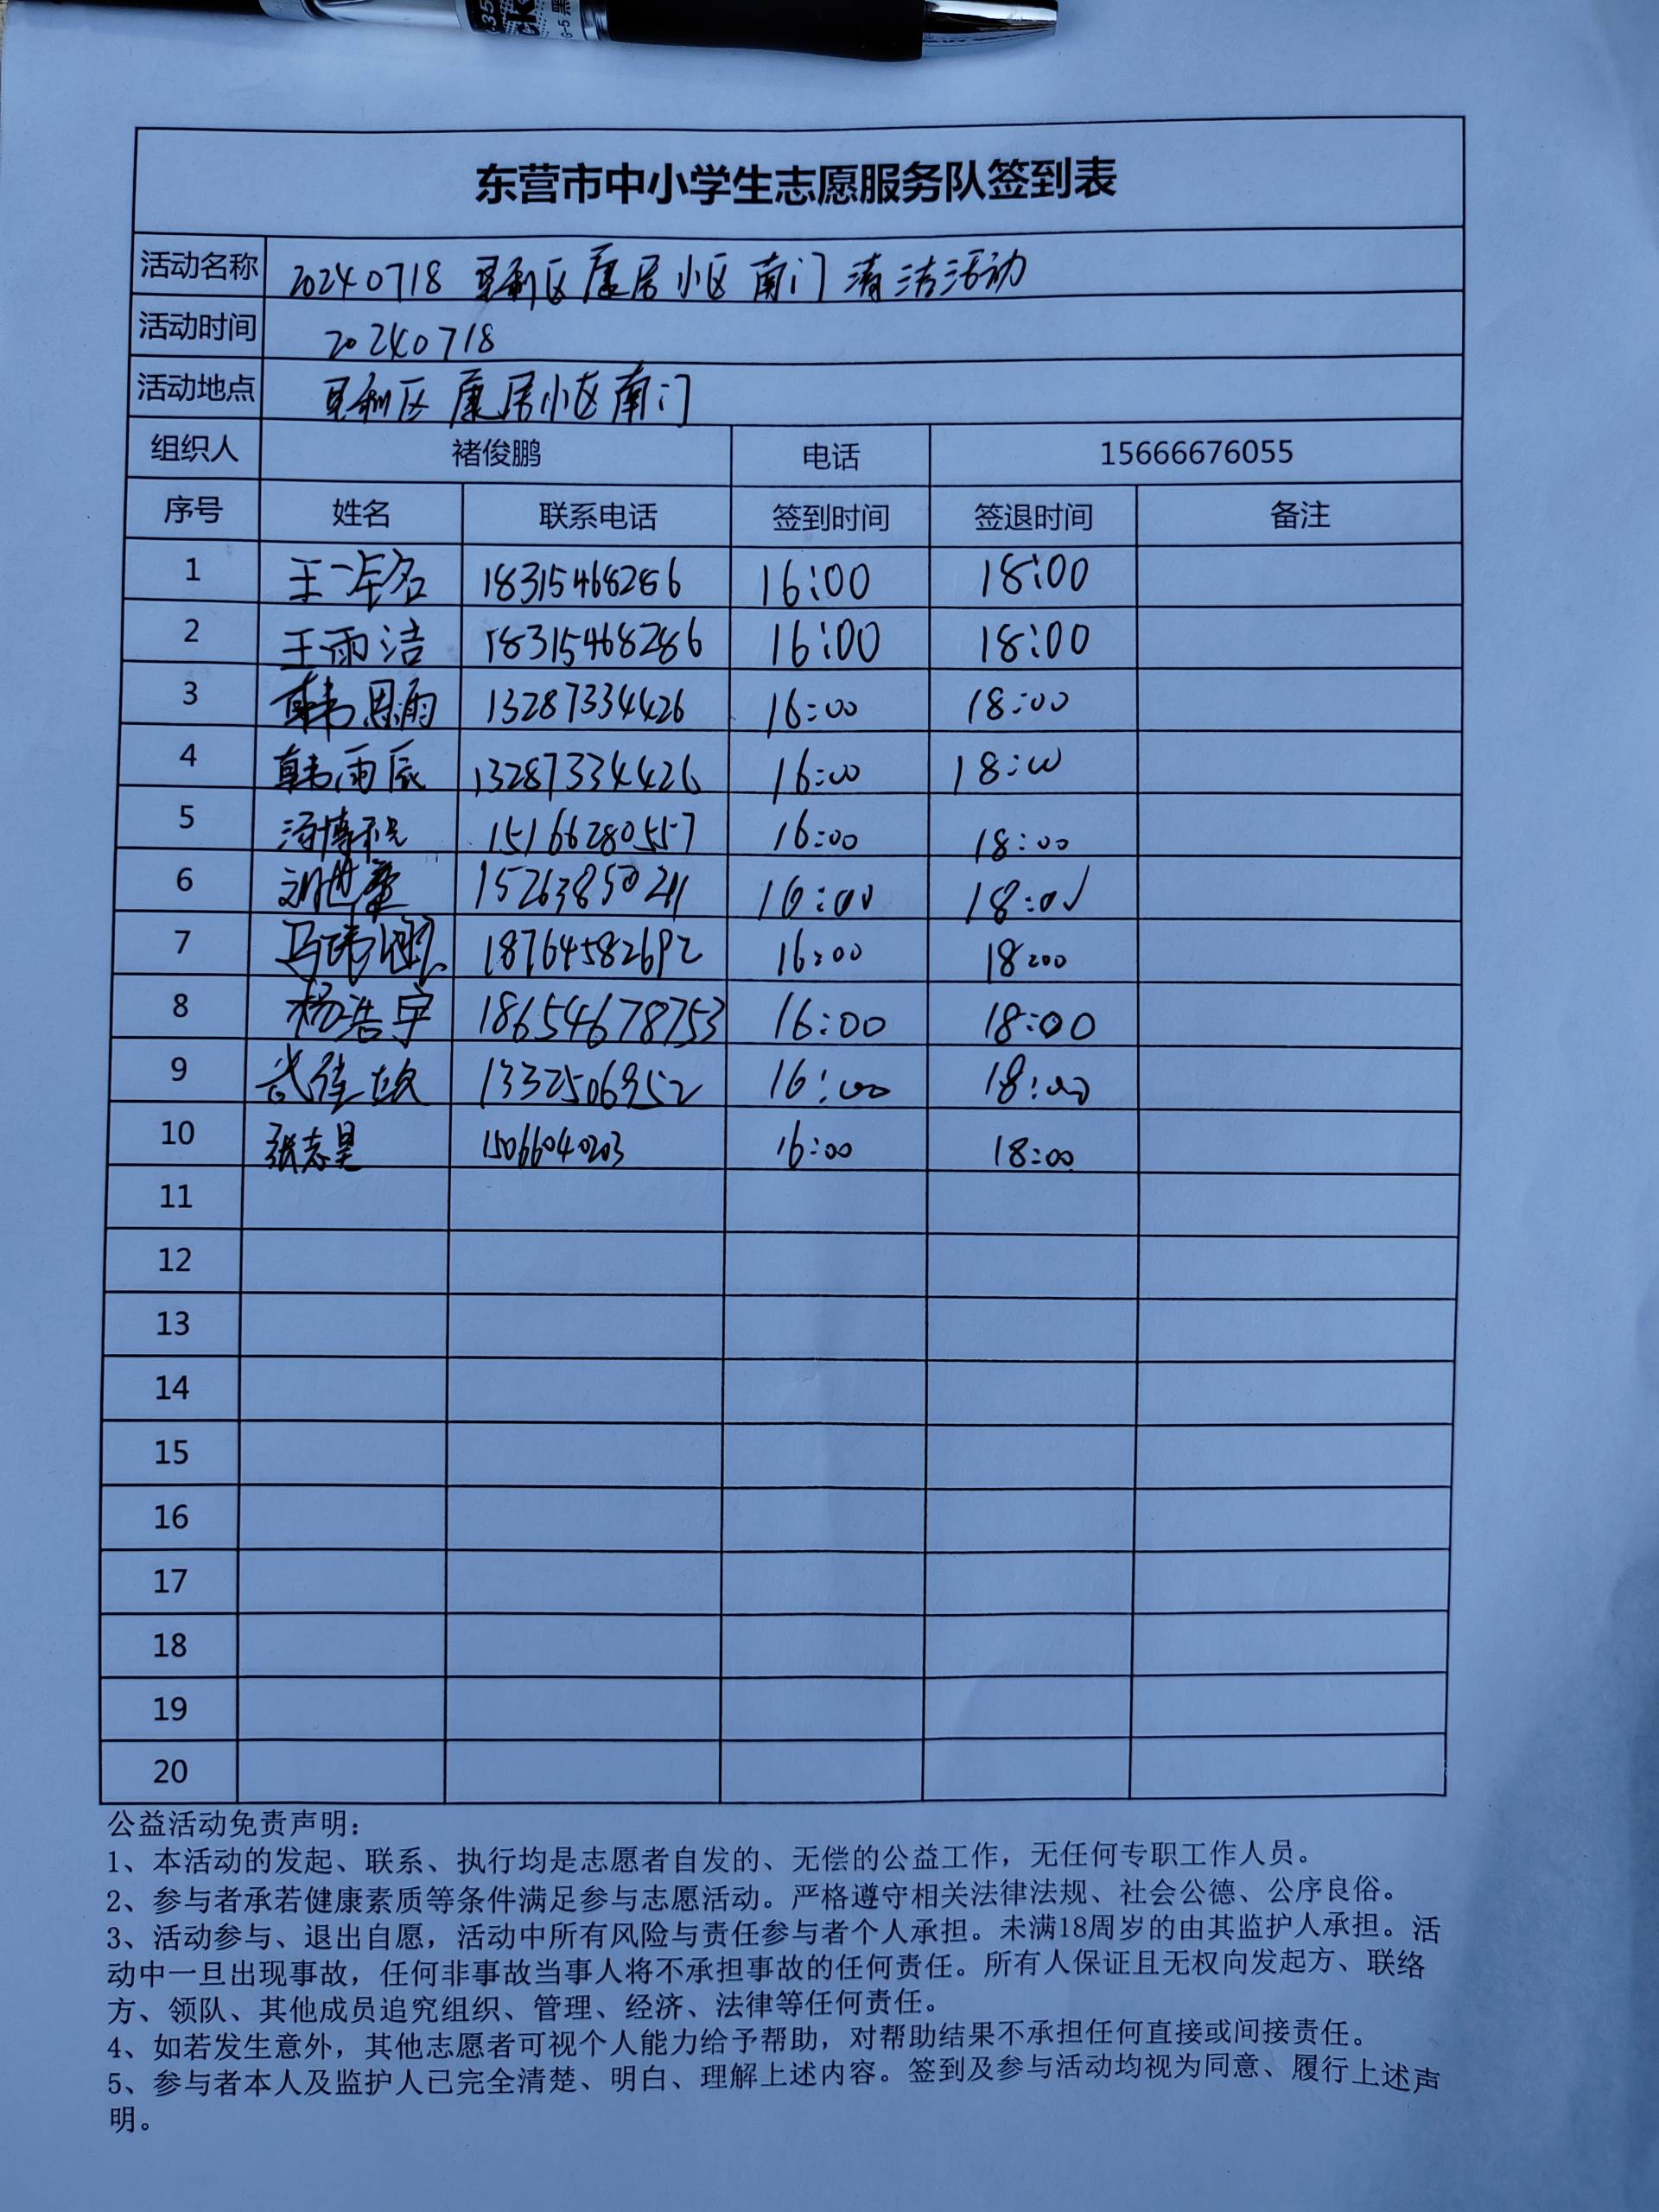 东营市中小学生志愿服务队签到表
活动名称 20240718 垦利区康居小区南门清洁活动
活动时间 20240718
活动地点 垦利区康居小区南门
组织人 褚俊鹏 电话 15666676055
序号 姓名 联系电话 签到时间 签退时间 备注
1 王一名 18315468286 16:00 18:00
2 王雨洁 18315468286 16:00 18:00
3 韩恩雨 13287334426 16:00 18:00
4 韩雨辰 13287334426 16:00 18:00
5 15166280557 16:00 18:00
6 刘世 15263850211 16:00 18:00
7 马 18764582692 16:00 18:00
8 杨浩宇 18654678753 16:00 18:00
9 1332506952 16:00 18:00
10 张志昊 15066040203 16:00 18:00
11
12
13
14
15
16
17
18
19
20
公益活动免责声明：
1、本活动的发起、联系、执行均是志愿者自发的、无偿的公益工作，无任何专职工作人员。
2、参与者承若健康素质等条件满足参与志愿活动。严格遵守相关法律法规、社会公德、公序良俗。
3、活动参与、退出自愿，活动中所有风险与责任参与者个人承担。未满18周岁的由其监护人承担。活
动中一旦出现事故，任何非事故当事人将不承担事故的任何责任。所有人保证且无权向发起方、联络
方、领队、其他成员追究组织、管理、经济、法律等任何责任。
4、如若发生意外，其他志愿者可视个人能力给予帮助，对帮助结果不承担任何直接或间接责任。
5、参与者本人及监护人已完全清楚、明白、理解上述内容。签到及参与活动均视为同意、履行上述声
明。